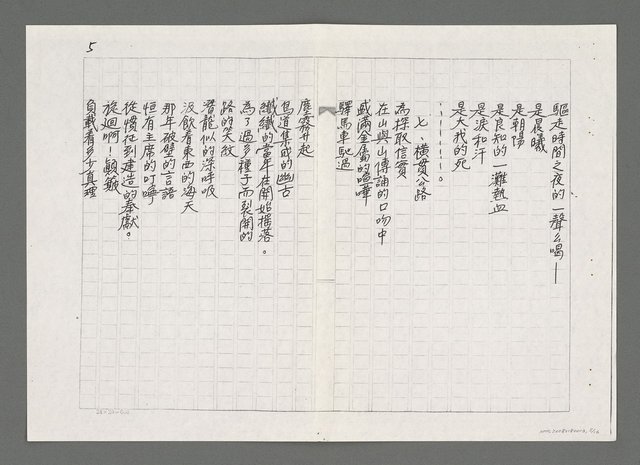 驅走時間之夜的一聲么喝——
是晨曦
是朝陽
是良知的一灘熱血
是淚和汗
是大我的死
⋯⋯⋯⋯
七、橫貫公路
為採取信實
在山與山傳誦的口吻中
盛滿金屬的喧嘩
驛馬車馳過
塵霧升起
鳥道集成的幽古
纖纖的當年在開始搖落。
為了過多種子而裂開的
路的笑紋
潛龍似的深呼吸
汲飲着東西的海天
那年破壁的言語
恒有主席的叮嚀
從慣性到建造的奉獻。
旋迴啊！顛簸
負載着多少真理
5